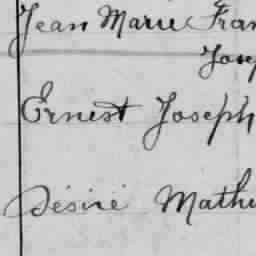 Jean Marie Fran
Josep
Ernest Joseph
Désiré Mathu